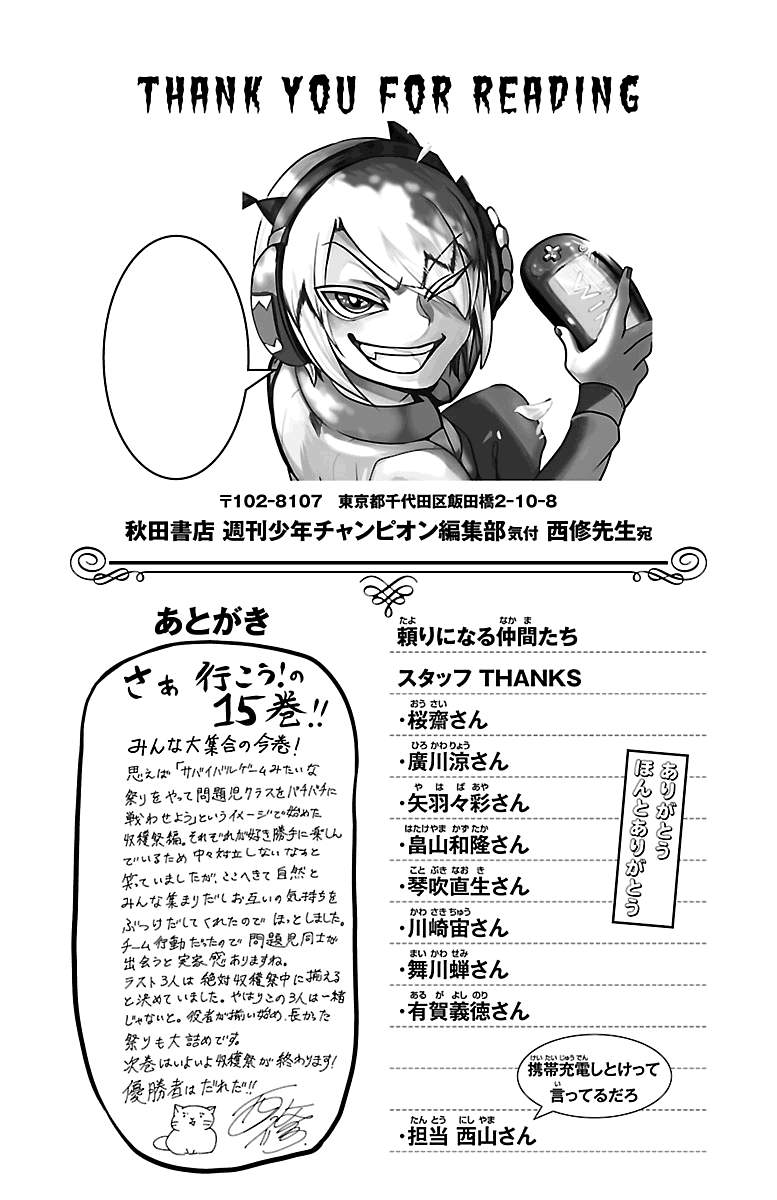 THANK YOU FOR READING
Win
〒102-8107　東京都千代田区飯田橋2-10-8
秋田書店 週刊少年チャンピオン編集部気付 西修先生宛
あとがき
さぁ 行こう!の
15巻!!
みんな大集合の今巻!
思えば「サバイバルゲームみたいな
祭りをやって問題児クラスをバチバチに
戦わせよう」というイメージで始めた
収穫祭編。それぞれが好き勝手に楽しん
でいるため中々対立しないなぁと
笑っていましたが、ここへきて自然と
みんな集まりだしお互いの気持ちを
ぶつけだしてくれたのでほっとしました。
チーム行動だったので問題児同士が
出会うと実家感ありますね。
ラスト3人は絶対収穫祭中に揃える
と決めていました。やはりこの3人は一緒
じゃないと。役者が揃い始め、長かった
祭りも大詰めです。
次巻はいよいよ収穫祭が終わります!
優勝者はだれだ!!
西修
頼りになる仲間たち
スタッフ THANKS
・桜齋さん
・廣川涼さん
・矢羽々彩さん
・畠山和隆さん
・琴吹直生さん
・川崎宙さん
・舞川蝉さん
・有賀義徳さん
ありがとう
ほんとありがとう
携帯充電しとけって
言ってるだろ
・担当 西山さん